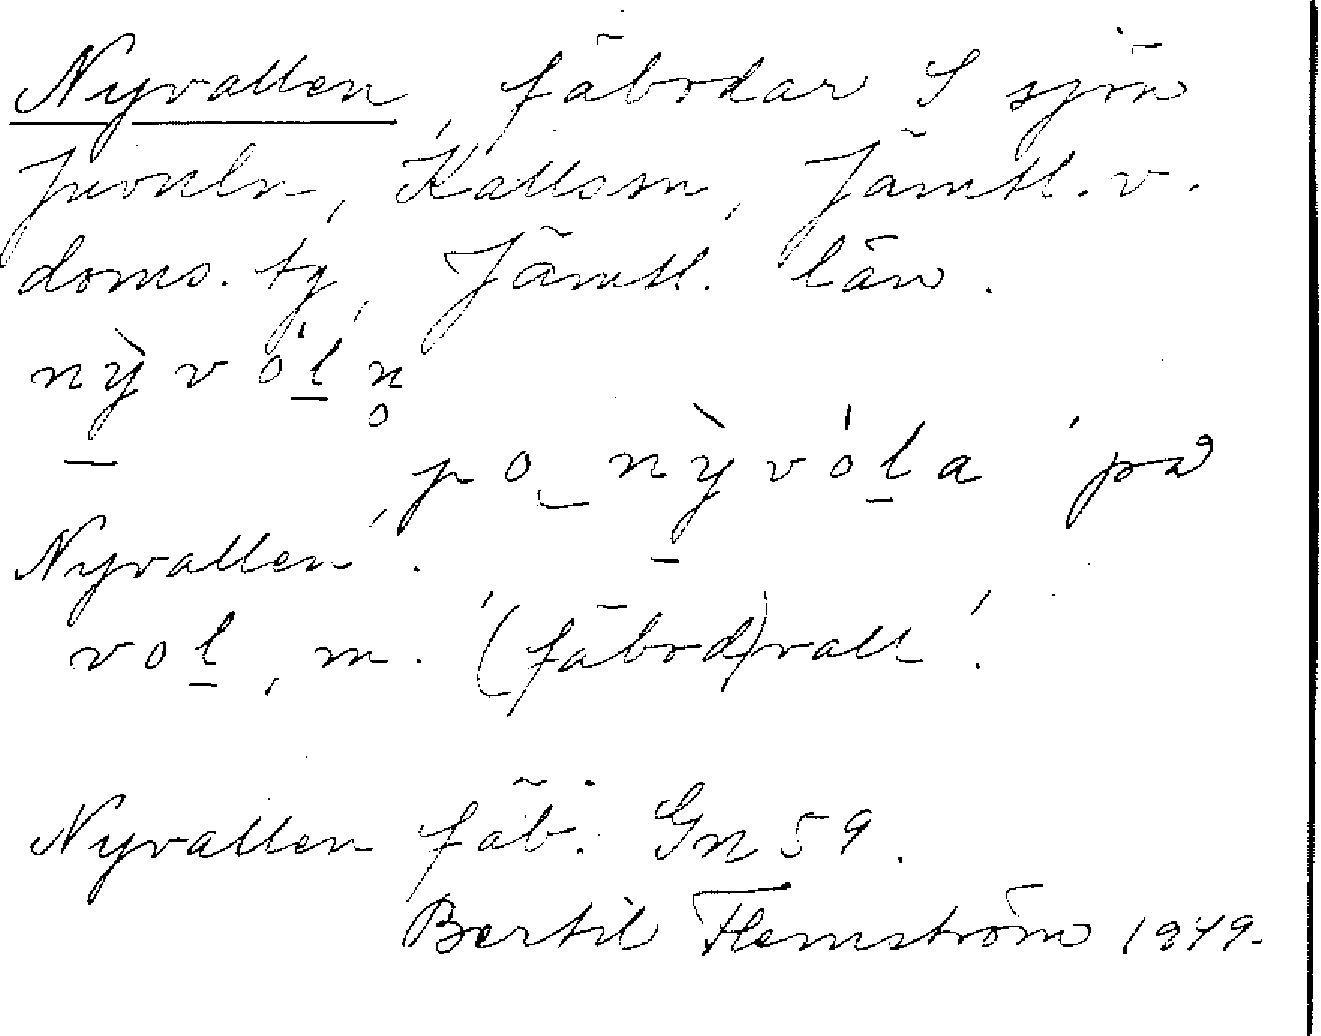 Nyvallen, fäbodar S sjön
Juveln, Kallsm, Jämtl. v.
doms. tg, Jämtl. län.
nỳ̱vóḻn̥
po‿nỳ̱vóḻa 'på
Nyvallen'.
voḻ, m. '(fäbod)vall'.
Nyvallen fäb. Gn 59.
Bertil Flemström 1949.